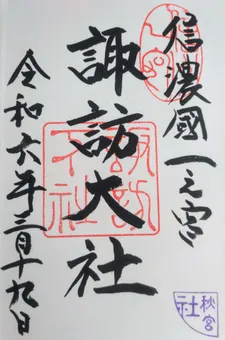 信濃國一之宮
諏訪大社
令和六年三月十九日
諏訪大社
秋宮
社